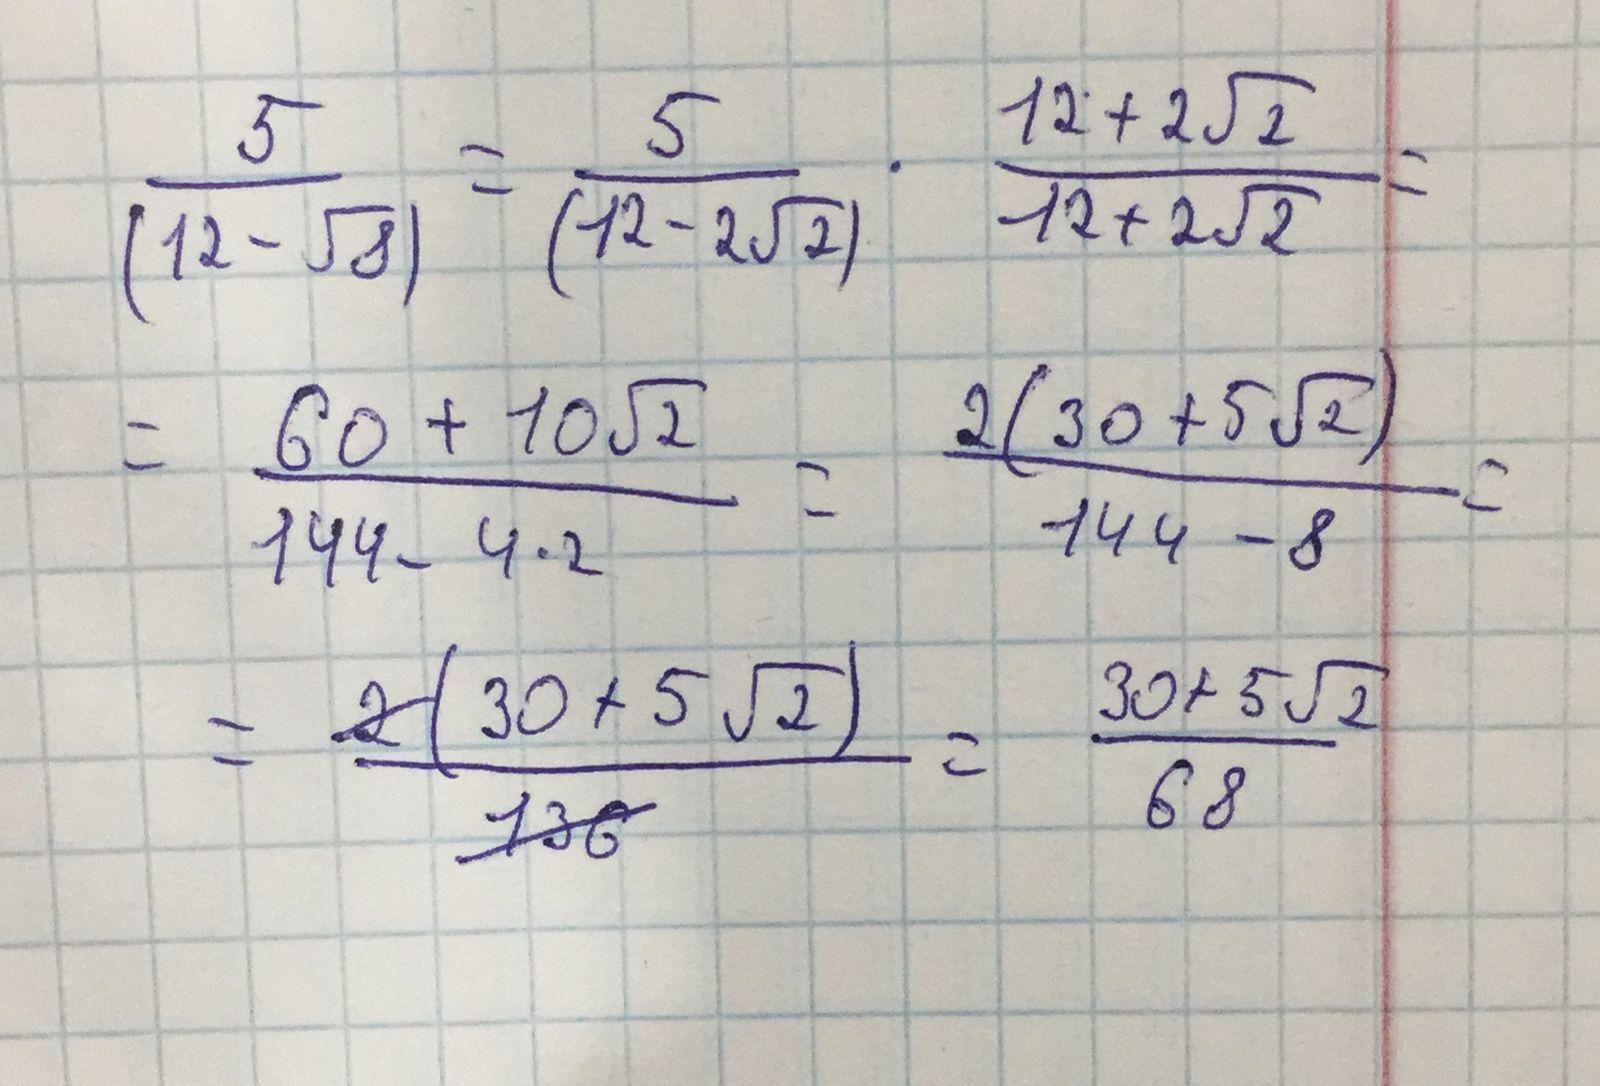 5/(12-√8) = 5/(12-2√2) · (12+2√2)/(12+2√2) =
= (60+10√2)/(144-4·2) = 2(30+5√2)/(144-8) =
= 2(30+5√2)/136 = (30+5√2)/68